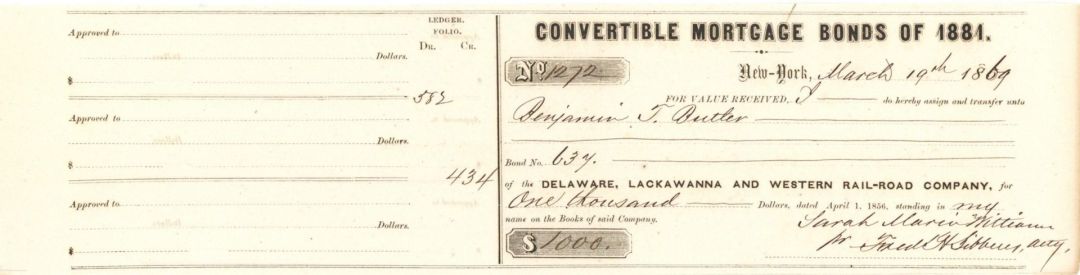 Approved to
Dollars.
$
Approved to
Dollars.
$
Approved to
Dollars.
$
LEDGER.
FOLIO.
Dr. Cr.
582
434
CONVERTIBLE MORTGAGE BONDS OF 1881.
No 1272
New-York, March 19th 1869
FOR VALUE RECEIVED, I do hereby assign and transfer unto
Benjamin T. Butler
Bond No. 637.
of the DELAWARE, LACKAWANNA AND WESTERN RAIL-ROAD COMPANY, for
One thousand Dollars, dated April 1, 1856, standing in my
name on the Books of said Company.
Sarah Maria
$ 1000.
pr Fred H atty,